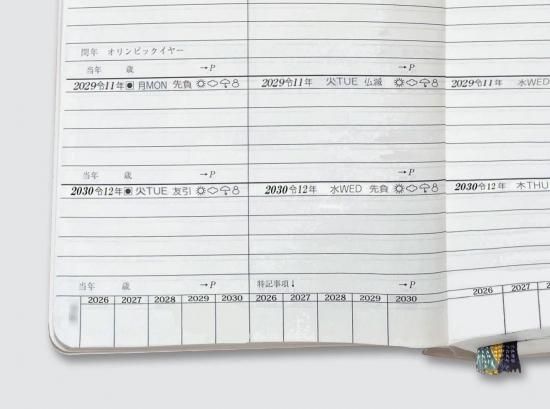 閏年 オリンピックイヤー
当年 歳 →P →P
2029令11年 月MON 先負 2029令11年 火TUE 仏滅 2029令11年 水WED
当年 歳 →P →P
2030令12年 火TUE 友引 2030令12年 水WED 先負 2030令12年 木THU
当年 歳 →P 特記事項↓ →P
2026 2027 2028 2029 2030 2026 2027 2028 2029 2030 2026 2027